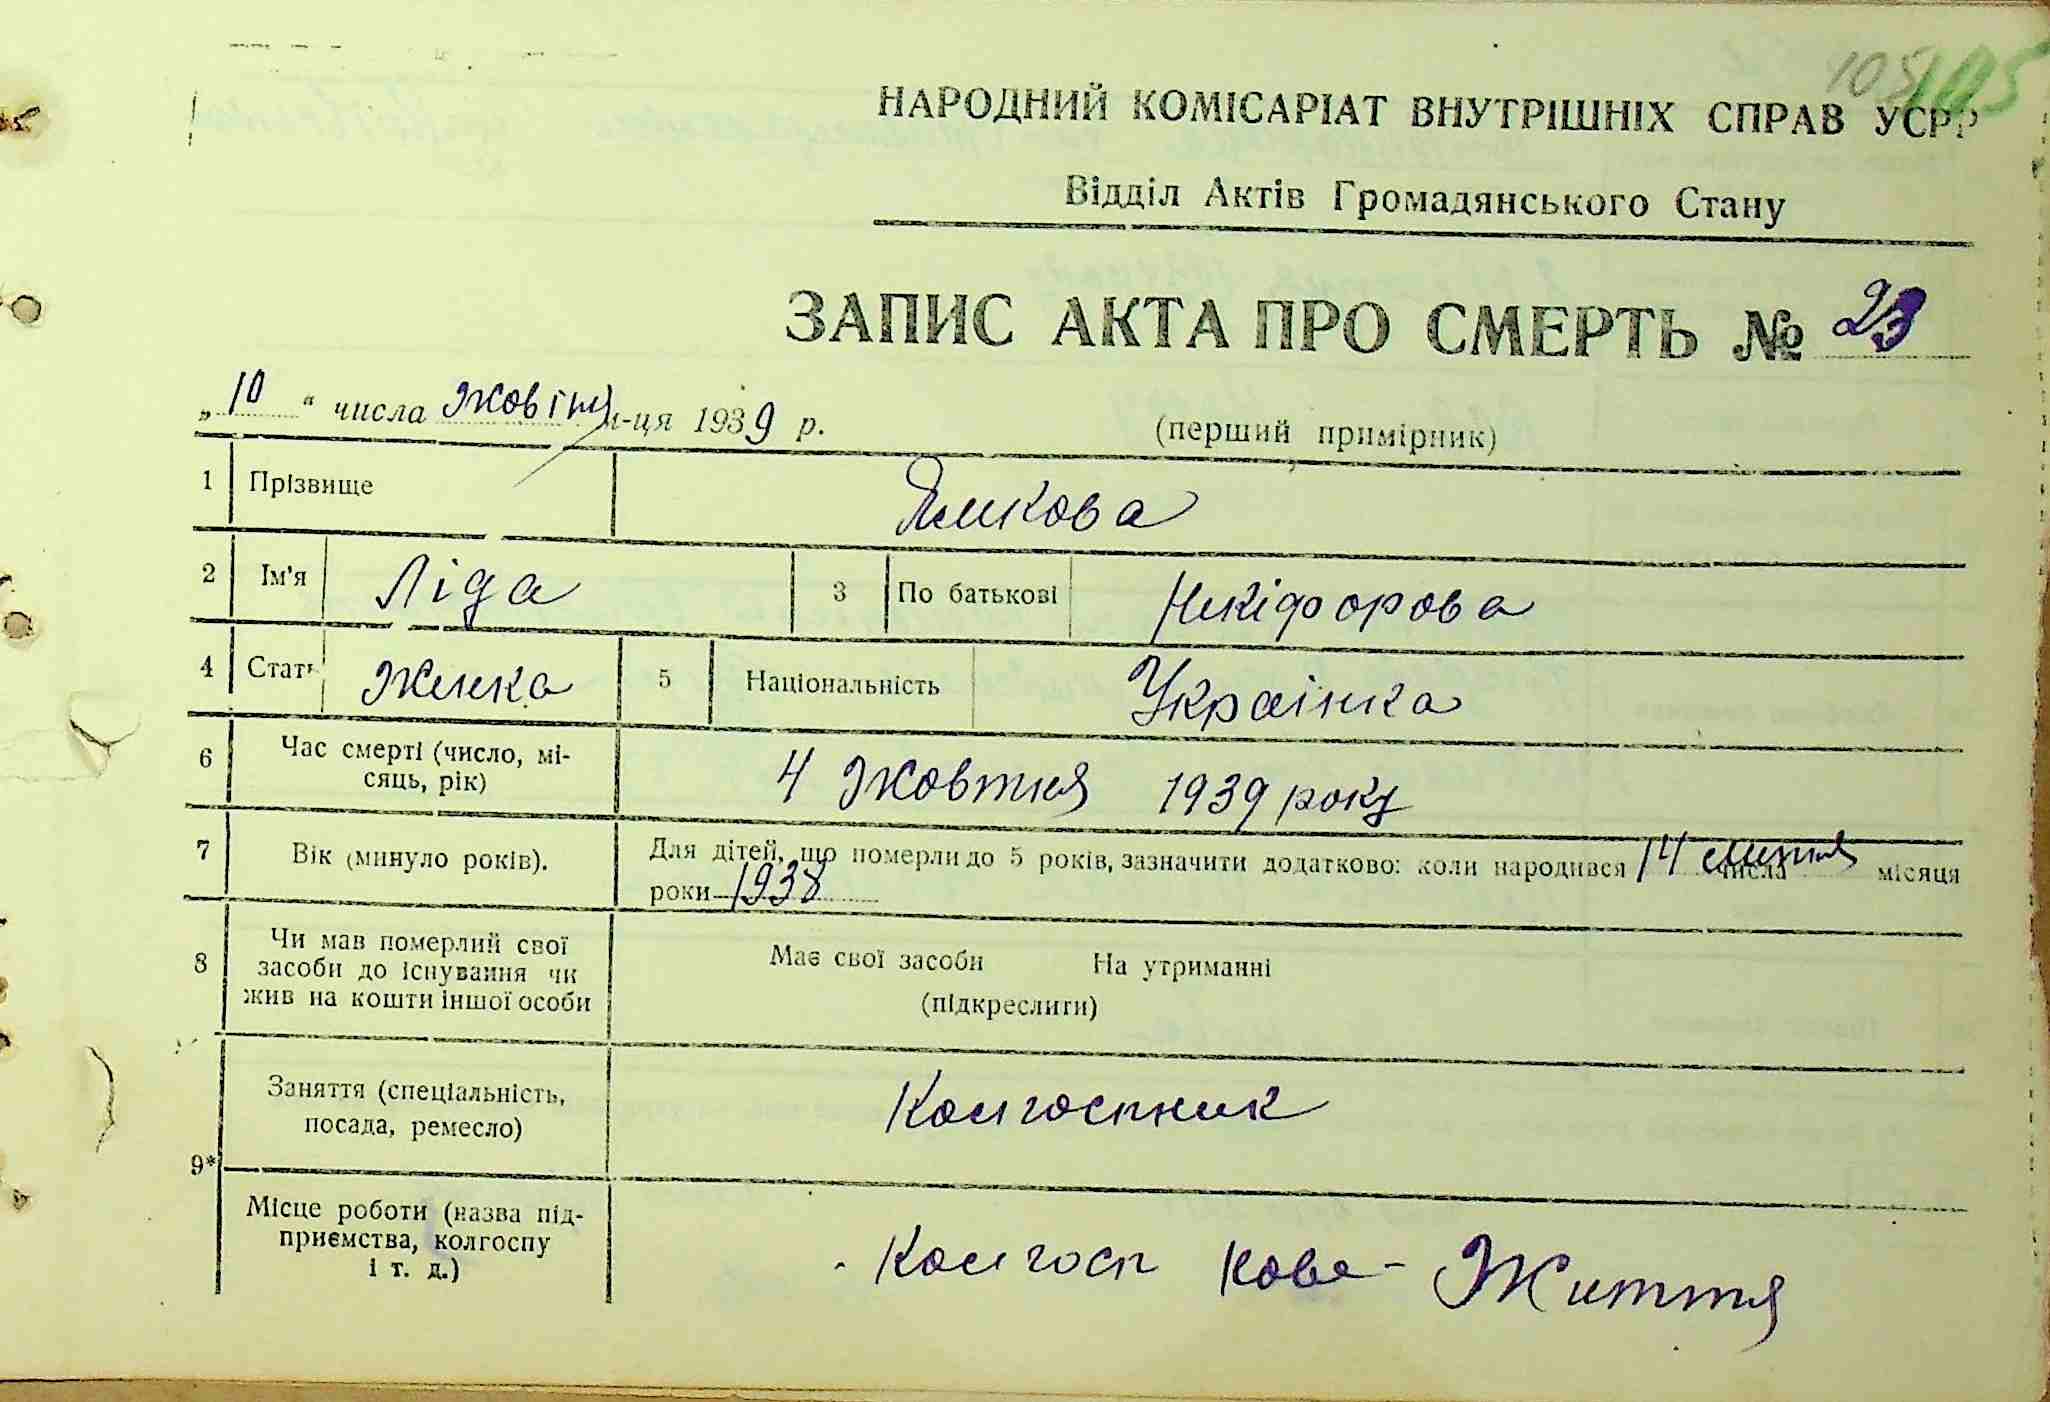 105 105
НАРОДНИЙ КОМІСАРІАТ ВНУТРІШНІХ СПРАВ УСРР
Відділ Актів Громадянського Стану
ЗАПИС АКТА ПРО СМЕРТЬ № 23
„10“ числа жовтня м-ця 1939 р. (перший примірник)
1 Прізвище
2 Ім'я Ліда 3 По батькові Никіфорова
4 Стать Жінка 5 Національність Українка
6 Час смерті (число, мі-
сяць, рік) 4 Жовтня 1939 року
7 Вік (минуло років). Для дітей, що померли до 5 років, зазначити додатково: коли народився 14 числа місяця
роки 1938
8 Чи мав померлий свої
засоби до існування чи
жив на кошти іншої особи
Має свої засоби На утриманні
(підкреслити)
9* Заняття (спеціальність,
посада, ремесло) Колгоспник
Місце роботи (назва під-
приємства, колгоспу
і т. д.) Колгосп Нове-Життя